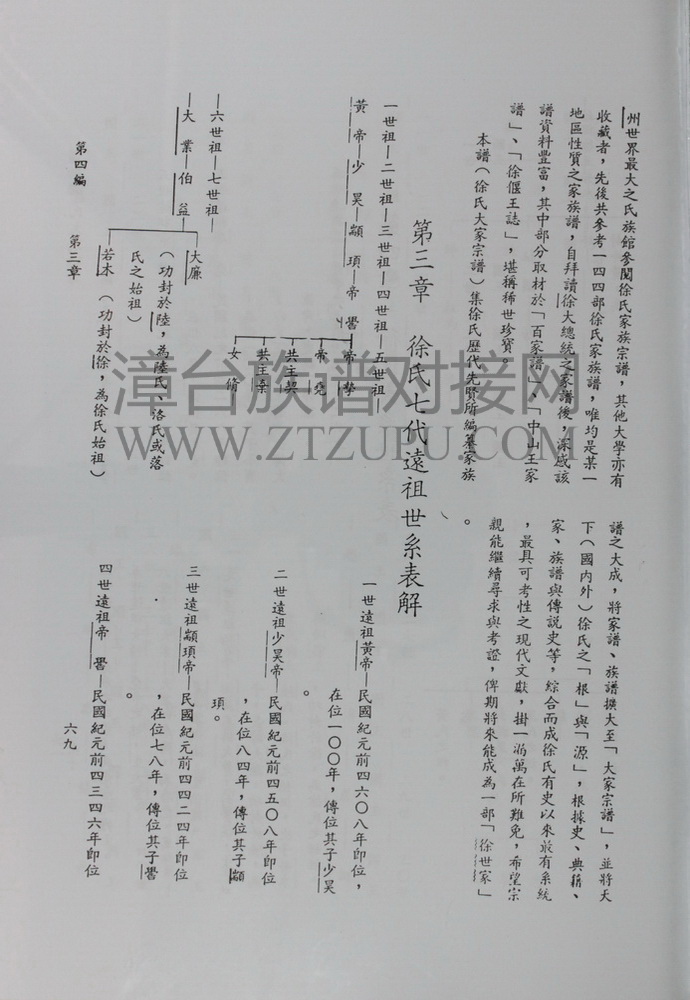 州世界最大之氏族館參閱徐氏家族宗譜，其他大學亦有
收藏者，先後共參考一四四部徐氏家族譜，唯均是某一
地區性質之家族譜，自拜讀徐大總統之家譜後，深感該
譜資料豐富，其中部分取材於「百家譜」、「中山王家
譜」、「徐偃王誌」，堪稱稀世珍寶。
本譜（徐氏大家宗譜）集徐氏歷代先賢所編纂家族
譜之大成，將家譜、族譜擴大至「大家宗譜」，並將天
下（國內外）徐氏之「根」與「源」，根據史、典籍、
家、族譜與傳說史等，綜合而成徐氏有史以來最有系統
，最具可考性之現代文獻，掛一漏萬在所難免，希望宗
親能繼續尋求與考證，俾期將來能成為一部「徐世家」
。
第三章　徐氏七代遠祖世系表解
一世祖—二世祖—三世祖—四世祖—五世祖
黃帝—少昊—顓頊—帝嚳
帝摯
帝堯
共主契
共主棄
女脩
—六世祖—七世祖—
—大業—伯益
大廉
（功封於陸，為陸氏、洛氏或落
氏之始祖）
若木
（功封於徐，為徐氏始祖）
一世遠祖黃帝—民國紀元前四六０八年即位，
在位一００年，傳位其子少昊
。
二世遠祖少昊帝—民國紀元前四五０八年即位
，在位八四年，傳位其子顓
頊。
三世遠祖顓頊帝—民國紀元前四四二四年即位
，在位七八年，傳位其子嚳
。
四世遠祖帝嚳—民國紀元前四三四六年即位
第四編　第三章
六九
漳台族谱对接网
WWW.ZTZUPU.COM